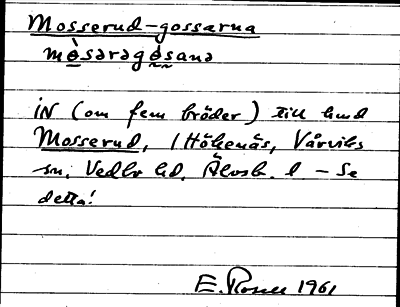 Mosserud-gossarna
mòsərəgósana
iN (om fem bröder) till hmd
Mosserud, i Hökenäs, Vårviks
sn, Vedbo hd, Älvsb. l – Se
detta!
E. Rosell 1961